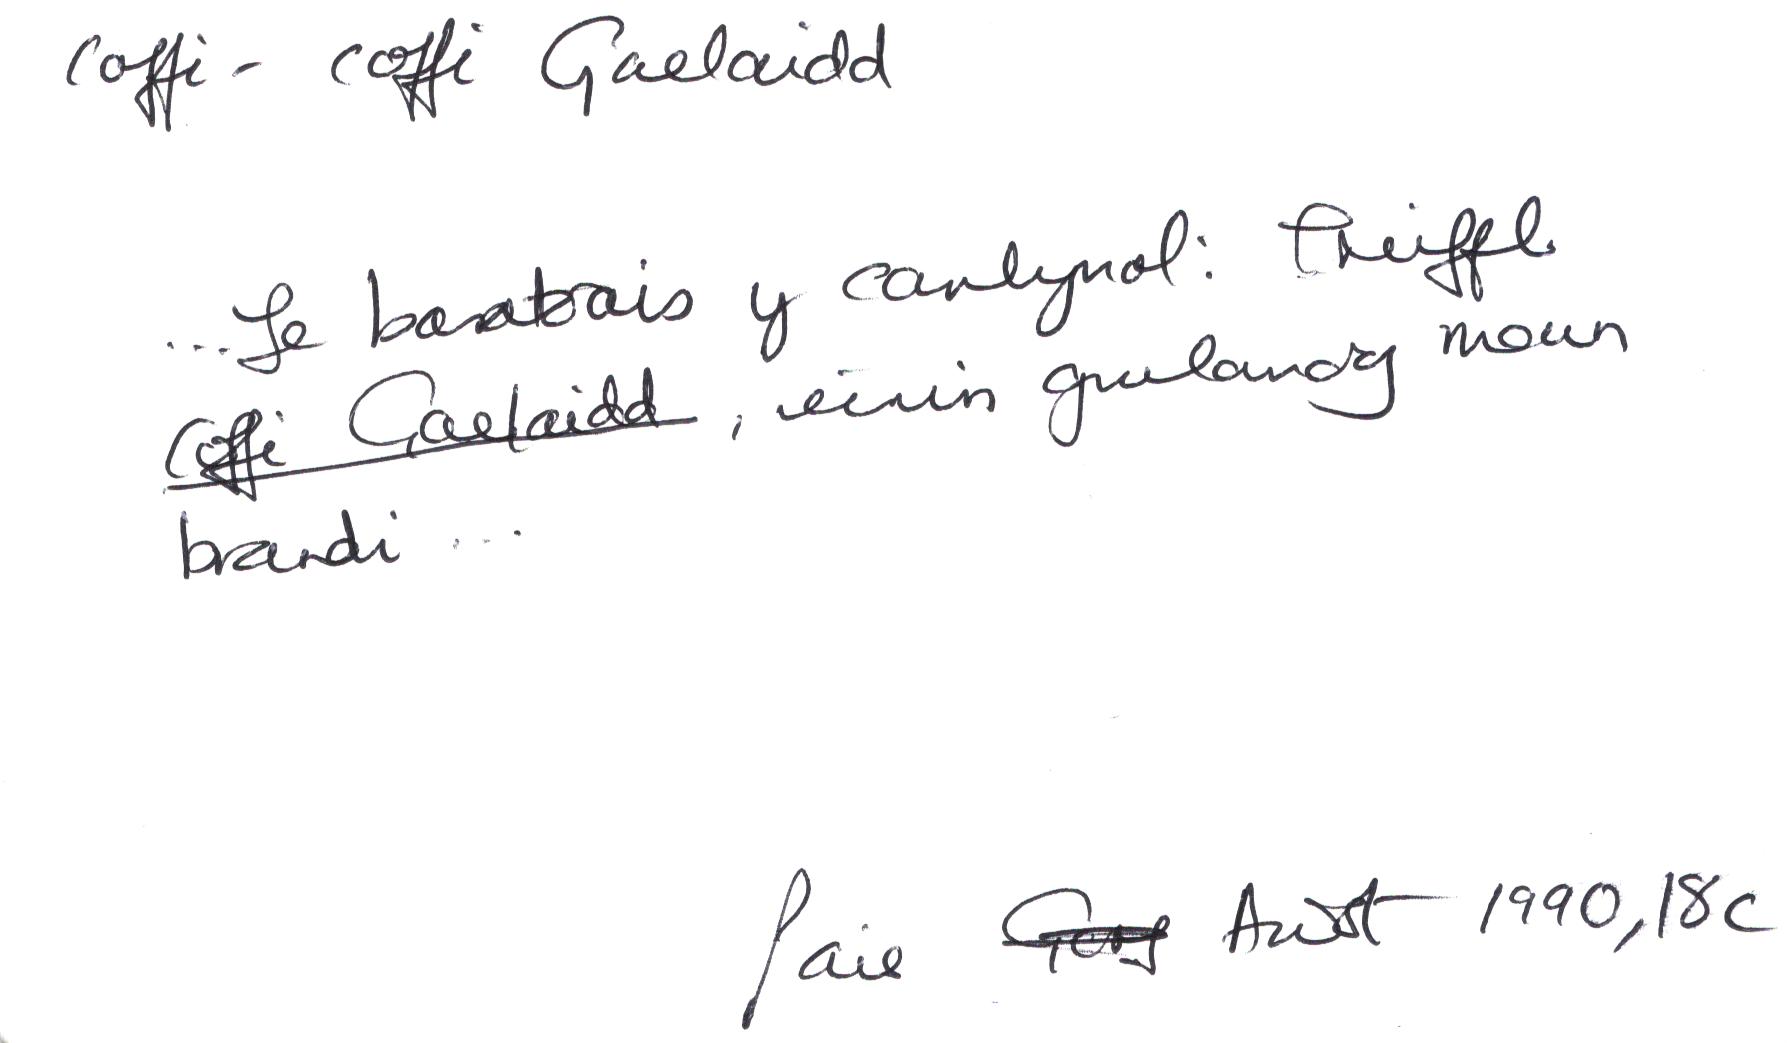 coffi - coffi Gaelaidd
... Fe baratoais y canlynol: treiffl
coffi Gaelaidd, eirin gwlanog mewn
brandi ...
Pais Awst 1990, 18c